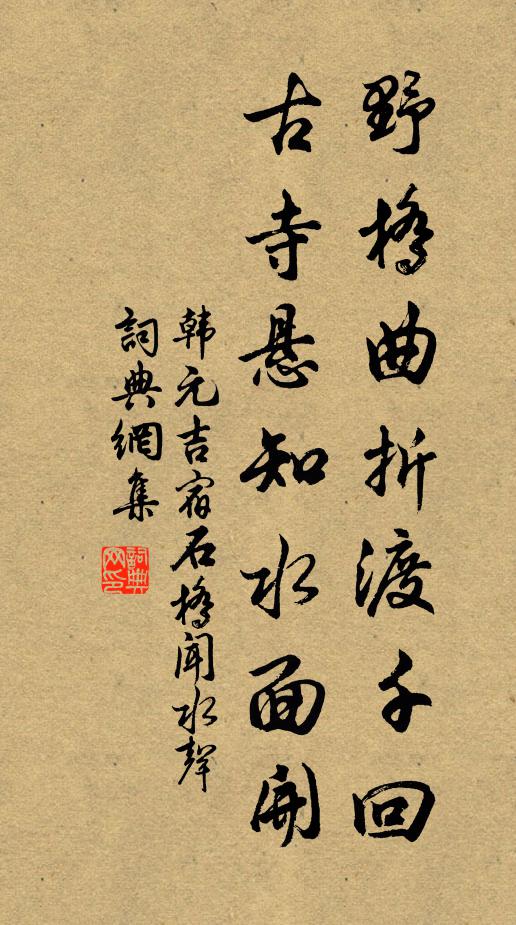 野橋曲折渡千回
古寺悬知水面開
韩元吉宿石橋聞水聲
詞典網集
詞典
网印